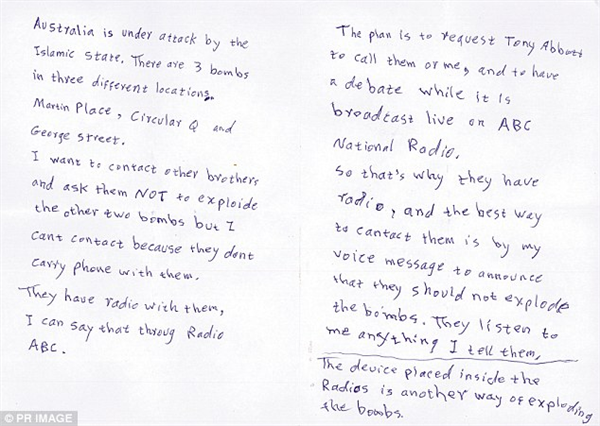 Australia is under attack by the
Islamic state. There are 3 bombs
in three different locations.
Martin Place, Circular Q and
George street.
I want to contact other brothers
and ask them NOT to exploide
the other two bombs but I
cant contact because they dont
carry phone with them.
They have radio with them,
I can say that throug Radio
ABC.
The plan is to request Tony Abbott
to call them or me, and to have
a debate while it is
broadcast live on ABC
National Radio.
So that's why they have
radio, and the best way
to cantact them is by my
voice message to announce
that they should not explode
the bombs. They listen to
me anything I tell them,
The device placed inside the
Radios is another way of exploding
the bombs.
© PR IMAGE